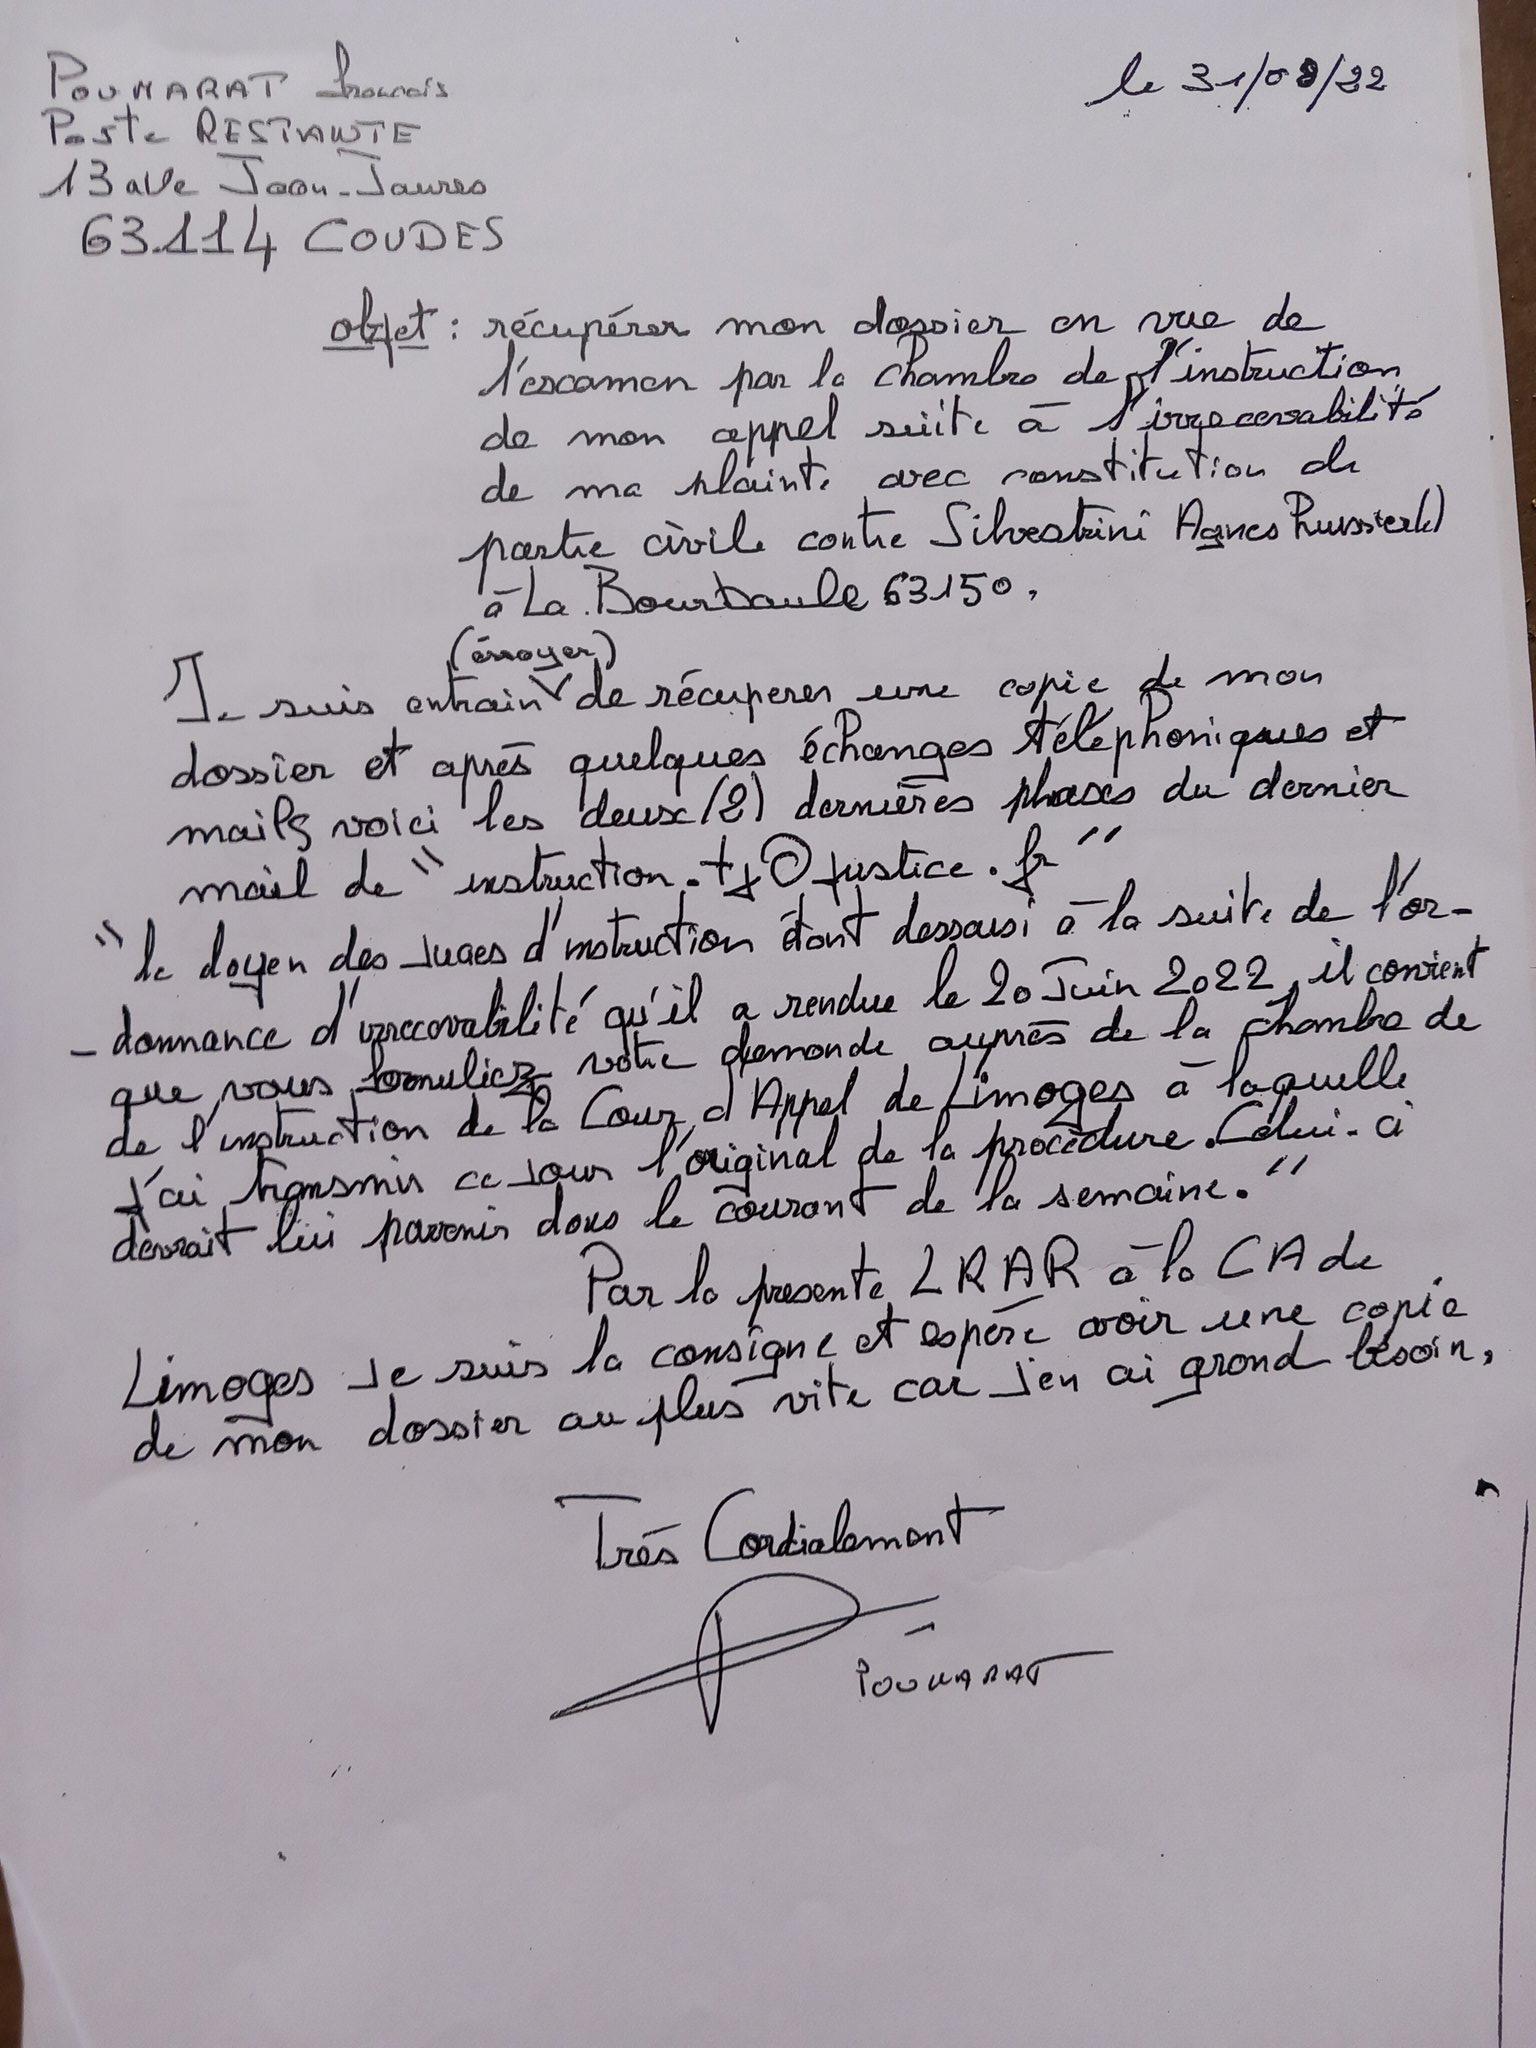 POUMARAT francois
Poste RESTANTE
13 ave Jean-Jaures
63.114 COUDES
le 31/08/22
objet : récupérer mon dossier en vue de
l'examen par la chambre de l'instruction
de mon appel suite à l'irrecevabilité
de ma plainte avec constitution de
partie civile contre Silvestrini Agnes
à La Bourboule 63150.
(éssayer)
Je suis entrain de récuperer une copie de mon
dossier et après quelques échanges téléphoniques et
mails voici les deux (2) dernières phases du dernier
mail de "instruction.tj@justice.fr"
"le doyen des juges d'instruction étant dessaisi à la suite de l'or-
-donnance d'irrecevabilité qu'il a rendue le 20 Juin 2022, il convient
que vous formuliez votre demande auprès de la chambre de
de l'instruction de la Cour d'Appel de Limoges à laquelle
j'ai transmis ce jour l'original de la procédure. Celui-ci
devrait lui parvenir dans le courant de la semaine."
Par la presente LRAR à la CA de
Limoges je suis la consigne et espère avoir une copie
de mon dossier au plus vite car j'en ai grand besoin,
Très Cordialement
POUMARAT